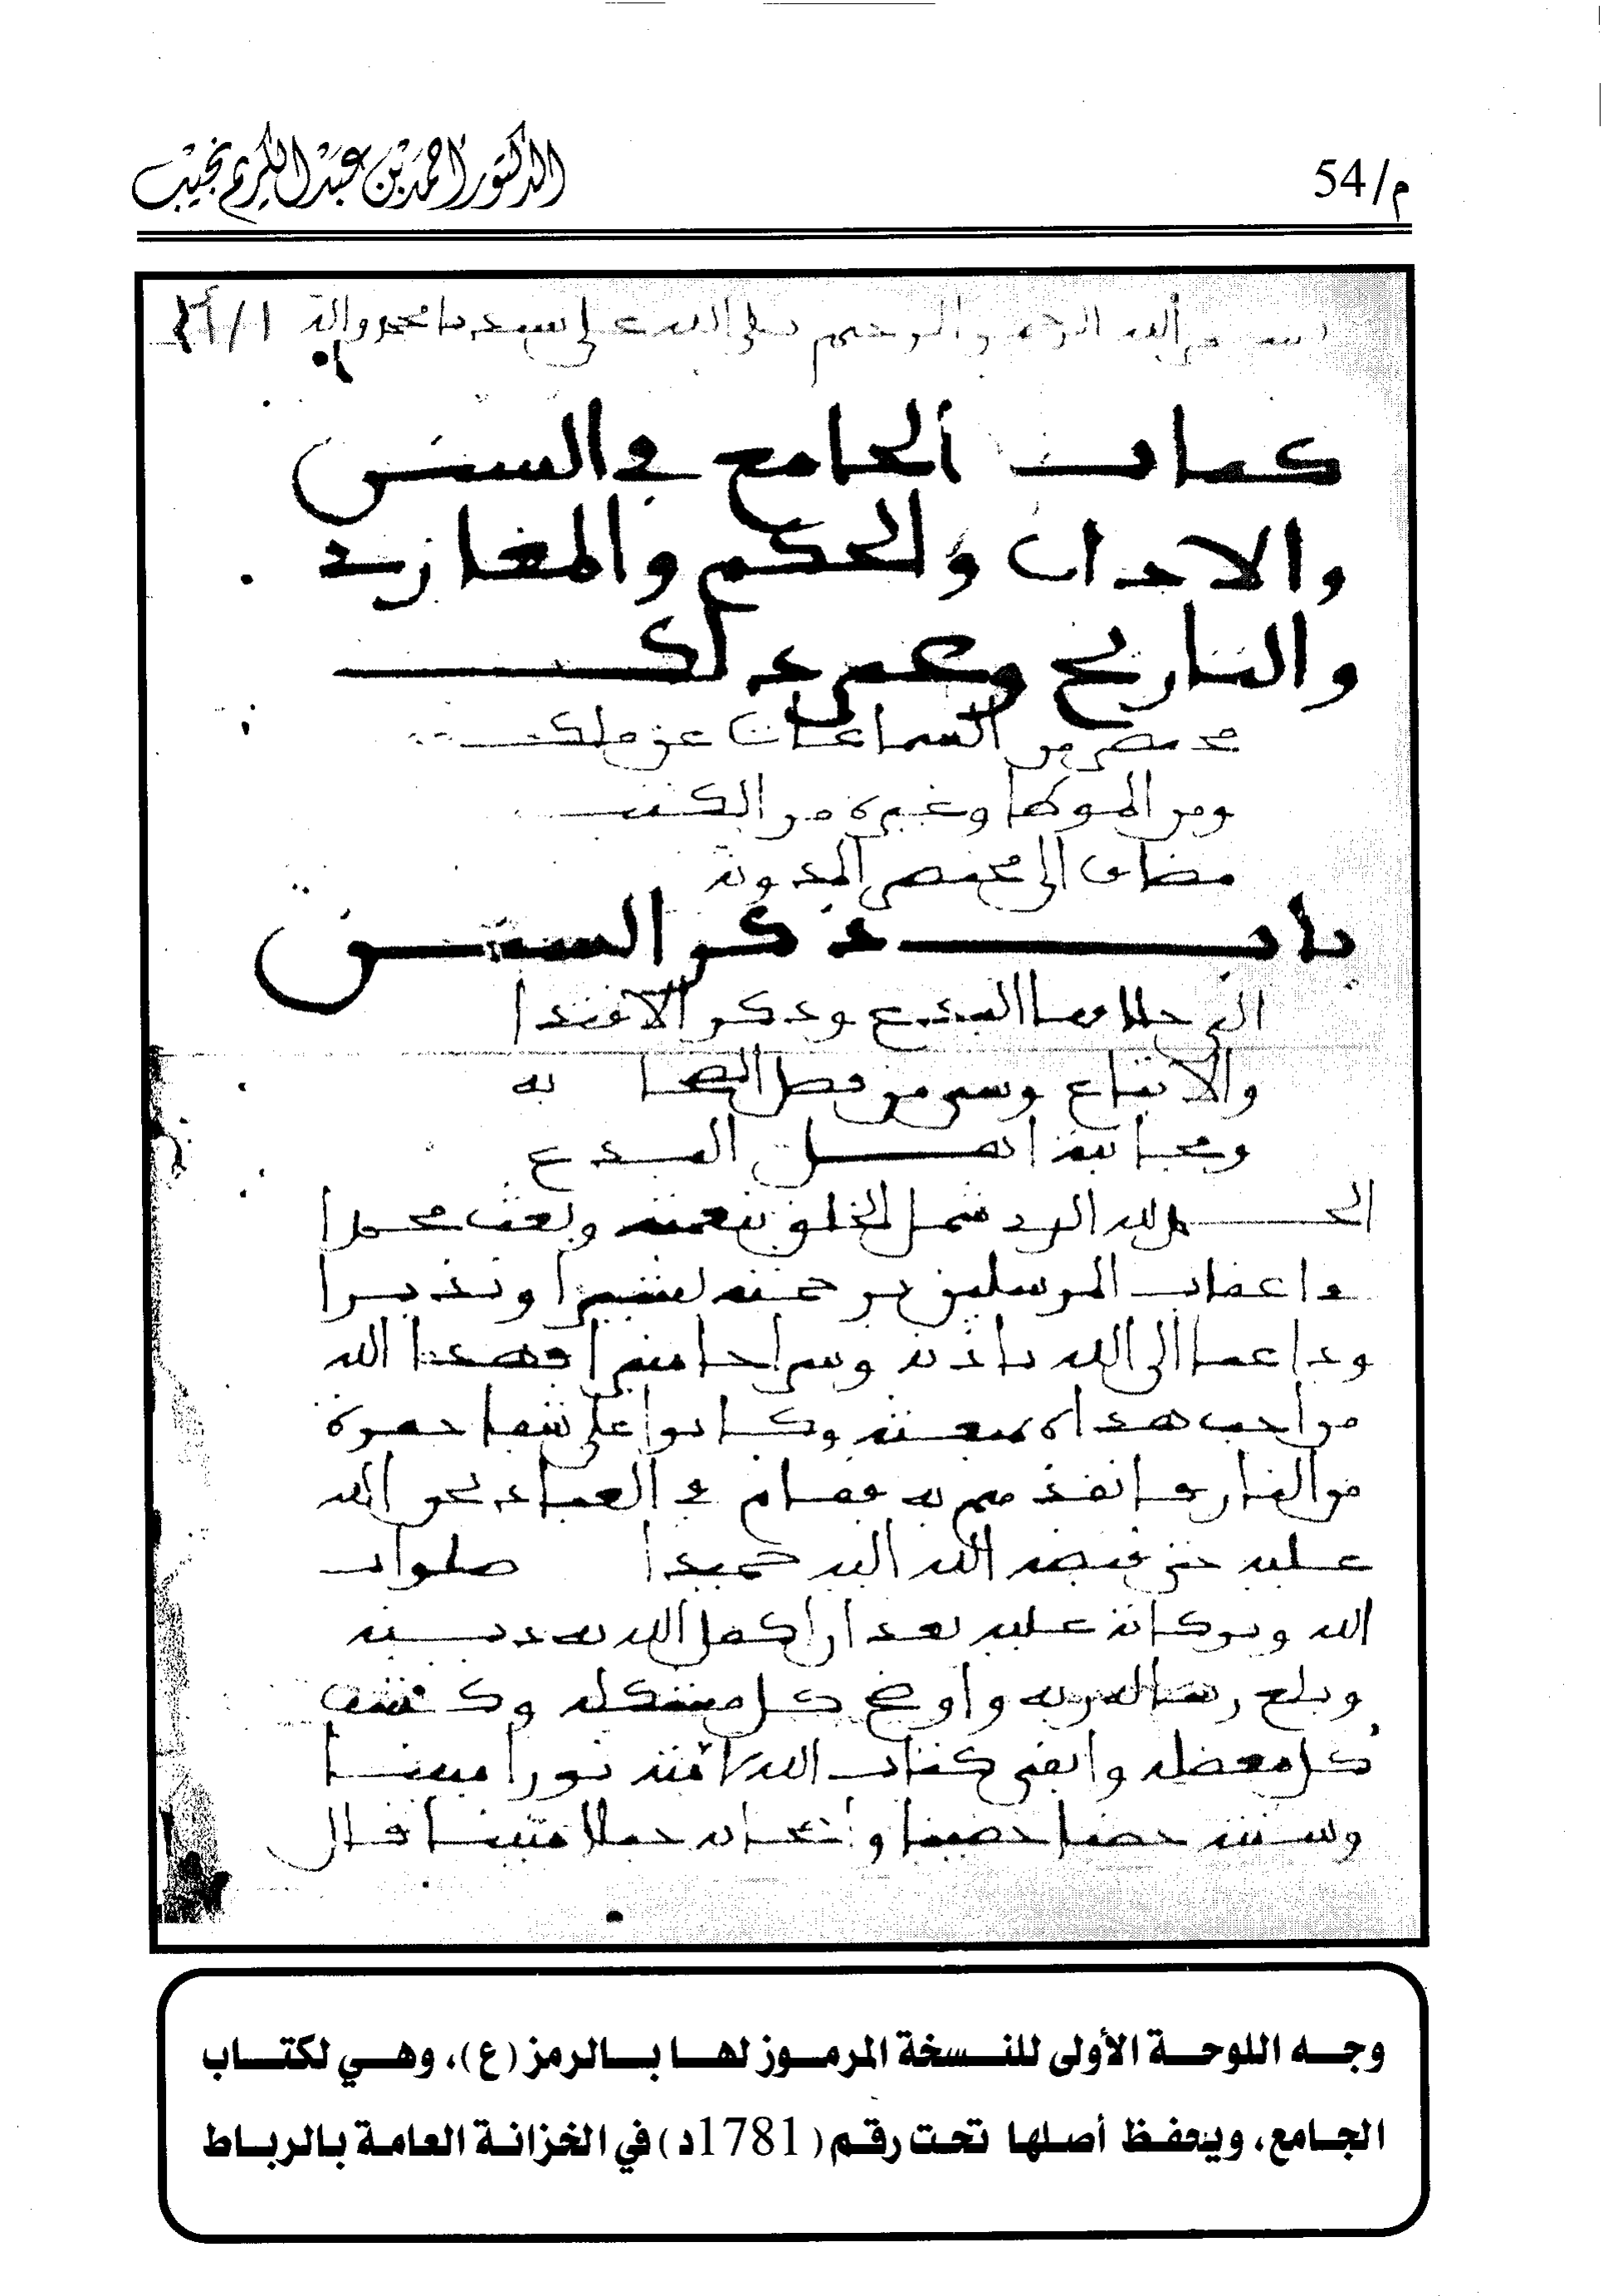 م/54
الدكتور أحمد بن عبد الكريم نجيب
بسم الله الرحمن الرحيم صلى الله على سيدنا محمد واله 1/أ
كتاب الجامع في السنن
والاداب والحكم والمغازي
والتاريخ وغير ذلك
مختصر من السماعات عن ملك
ومن الموطا وغيره من الكتب
مضاف الى مختصر المدونة
باب ذكر السنن
التي خلافها البدع وذكر الاقتدا
والاتباع وشي من فضل الصحابه
ومجانبة اهل البدع
الحمد لله الذي شمل الخلق بنعمته وبعث محمدا
في اعقاب المرسلين برحمته بشيرا ونذيرا
وداعيا الى الله باذنه وسراجا منيرا فهدا الله
من احب هداه ببعثته وكانوا على شفا حفرة
من النار فانقذهم به فقام في العباد بحق الله
عليه حتى قبضه الله اليه حميدا صلوات
الله وبركاته عليه بعد ان اكمل الله به دينه
وبلغ رسالة ربه واوضح كل مشكلة وكشف
كل معضلة وابقى كتاب الله لامته نورا مبينا
وسنته حصنا حصينا واصحابه حبلا متينا قال
وجه اللوحة الأولى للنسخة المرموز لها بالرمز (ع)، وهي لكتاب
الجامع، ويحفظ أصلها تحت رقم (1781د) في الخزانة العامة بالرباط